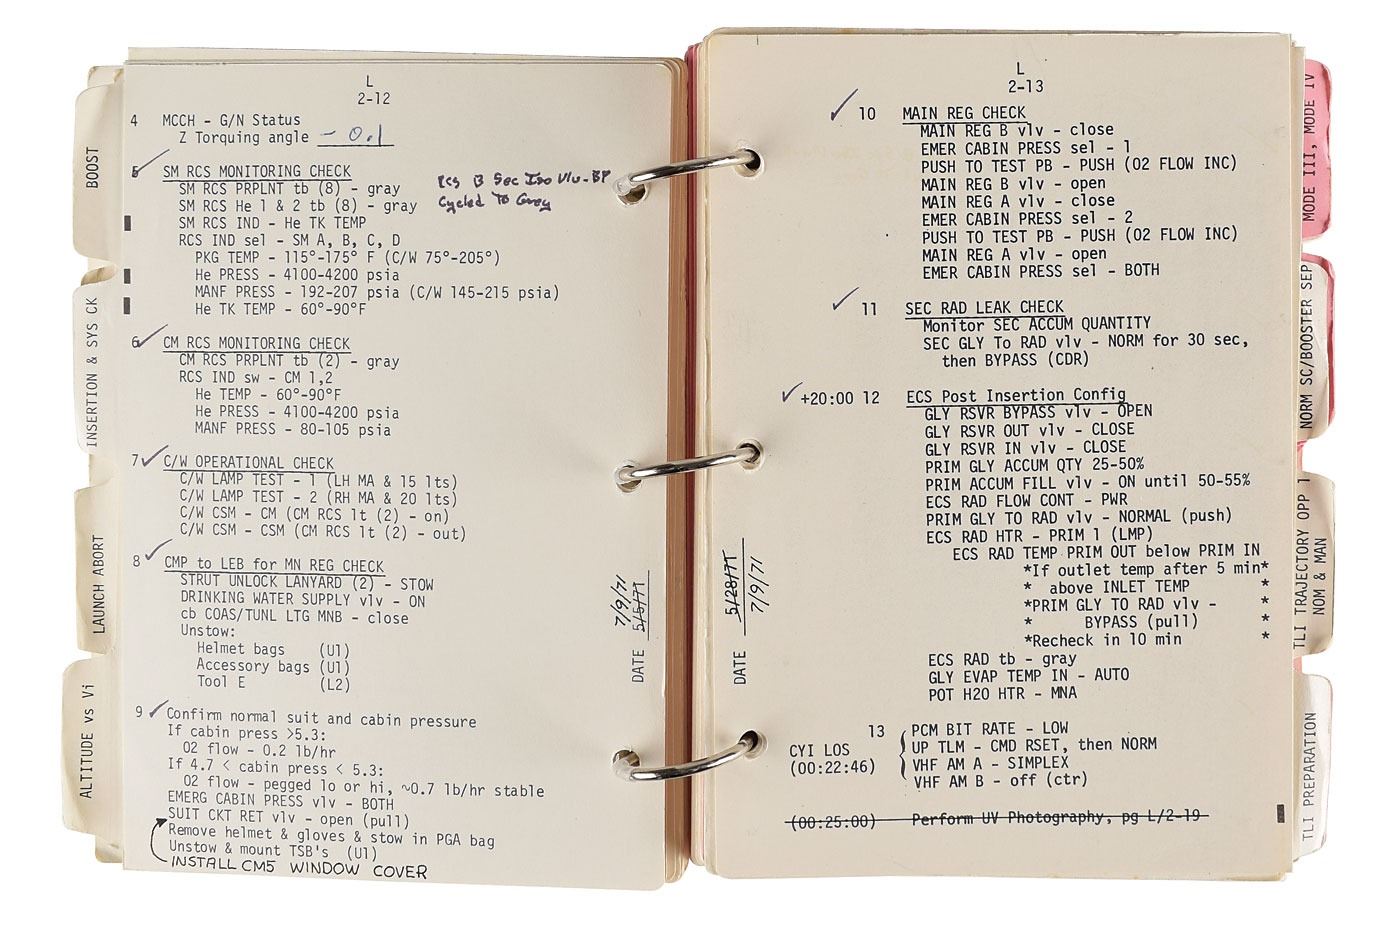 BOOST
INSERTION & SYS CK
LAUNCH ABORT
ALTITUDE vs Vi
L
2-12
4 MCCH - G/N Status
Z Torquing angle - 0.1
5 SM RCS MONITORING CHECK
SM RCS PRPLNT tb (8) - gray
SM RCS He 1 & 2 tb (8) - gray
Rcs B Sec Iso Vlv-BP
Cycled To Grey
SM RCS IND - He TK TEMP
RCS IND sel - SM A, B, C, D
PKG TEMP - 115°-175° F (C/W 75°-205°)
He PRESS - 4100-4200 psia
MANF PRESS - 192-207 psia (C/W 145-215 psia)
He TK TEMP - 60°-90°F
6 CM RCS MONITORING CHECK
CM RCS PRPLNT tb (2) - gray
RCS IND sw - CM 1,2
He TEMP - 60°-90°F
He PRESS - 4100-4200 psia
MANF PRESS - 80-105 psia
7 C/W OPERATIONAL CHECK
C/W LAMP TEST - 1 (LH MA & 15 lts)
C/W LAMP TEST - 2 (RH MA & 20 lts)
C/W CSM - CM (CM RCS lt (2) - on)
C/W CSM - CSM (CM RCS lt (2) - out)
8 CMP to LEB for MN REG CHECK
STRUT UNLOCK LANYARD (2) - STOW
DRINKING WATER SUPPLY vlv - ON
cb COAS/TUNL LTG MNB - close
Unstow:
Helmet bags (U1)
Accessory bags (U1)
Tool E (L2)
9 Confirm normal suit and cabin pressure
If cabin press >5.3:
O2 flow - 0.2 lb/hr
If 4.7 < cabin press < 5.3:
O2 flow - pegged lo or hi, ~0.7 lb/hr stable
EMERG CABIN PRESS vlv - BOTH
SUIT CKT RET vlv - open (pull)
Remove helmet & gloves & stow in PGA bag
Unstow & mount TSB's (U1)
INSTALL CM5 WINDOW COVER
7/9/71
DATE 5/5/71
L
2-13
10 MAIN REG CHECK
MAIN REG B vlv - close
EMER CABIN PRESS sel - 1
PUSH TO TEST PB - PUSH (O2 FLOW INC)
MAIN REG B vlv - open
MAIN REG A vlv - close
EMER CABIN PRESS sel - 2
PUSH TO TEST PB - PUSH (O2 FLOW INC)
MAIN REG A vlv - open
EMER CABIN PRESS sel - BOTH
11 SEC RAD LEAK CHECK
Monitor SEC ACCUM QUANTITY
SEC GLY To RAD vlv - NORM for 30 sec,
then BYPASS (CDR)
+20:00 12 ECS Post Insertion Config
GLY RSVR BYPASS vlv - OPEN
GLY RSVR OUT vlv - CLOSE
GLY RSVR IN vlv - CLOSE
PRIM GLY ACCUM QTY 25-50%
PRIM ACCUM FILL vlv - ON until 50-55%
ECS RAD FLOW CONT - PWR
PRIM GLY TO RAD vlv - NORMAL (push)
ECS RAD HTR - PRIM 1 (LMP)
ECS RAD TEMP PRIM OUT below PRIM IN
*If outlet temp after 5 min*
* above INLET TEMP *
*PRIM GLY TO RAD vlv - *
* BYPASS (pull) *
*Recheck in 10 min *
ECS RAD tb - gray
GLY EVAP TEMP IN - AUTO
POT H2O HTR - MNA
13 PCM BIT RATE - LOW
CYI LOS UP TLM - CMD RSET, then NORM
(00:22:46) VHF AM A - SIMPLEX
VHF AM B - off (ctr)
(00:25:00) Perform UV Photography, pg L/2-19
5/28/71
DATE 7/9/71
MODE III, MODE IV
NORM SC/BOOSTER SEP
TLI TRAJECTORY OPP 1
NOM & MAN
TLI PREPARATION